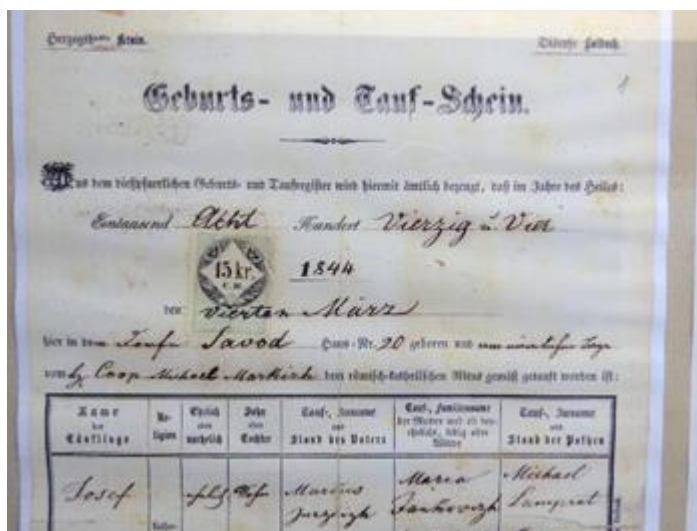 Herzogthum Krain. Diöcese Laibach.
Geburts- und Tauf-Schein.
1
Aus dem dießpfarrlichen Geburts- und Taufregister wird hiermit ämtlich bezeugt, daß im Jahre des Heiles:
Eintausend Acht Hundert Vierzig u. Vier
15 kr.
C.M.
1844
den vierten März
hier in dem Dorfe Savod Haus-Nr. 20 geboren und am nämlichen Tage
vom Coop. Michael dem römisch-katholischen Ritus gemäß getauft worden ist:
Name des Täuflings
Religion
Ehelich oder unehelich
Sohn oder Tochter
Tauf-, Zuname und Stand des Vaters
Tauf-, Familienname der Mutter und ob verehelicht, ledig oder Witwe
Tauf-, Zuname und Stand der Pathen
Josef
ehelich
Sohn
Maria
Michael